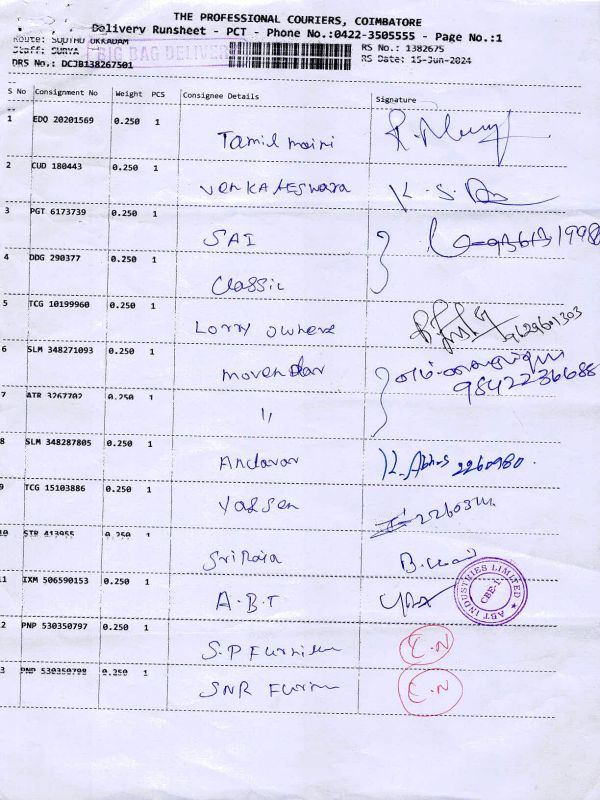 THE PROFESSIONAL COURIERS, COIMBATORE
Delivery Runsheet - PCT - Phone No.:0422-3505555 - Page No.:1
Route: UKKADAM
Staff: SURYA
BIG BAG DELIVERY
RS No.: 1382675
RS Date: 15-Jun-2024
DRS No.: DCJB138267501
S No Consignment No Weight PCS Consignee Details Signature
1 EDO 20201569 0.250 1 Tamil
2 CUD 180443 0.250 1 venkateswara K. S.
3 PGT 6173739 0.250 1 SAI
4 DDG 290377 0.250 1 Classic
5 TCG 10199960 0.250 1 Lorry owners 9629601303
6 SLM 348271093 0.250 1 movendar 9842236688
7 ATR 3267702 0.250 1 "
8 SLM 348287805 0.250 1 Andavar 2260980.
9 TCG 15103886 0.250 1 Yassen
10 STR 413955 0.250 1 Sri Raja B.
11 IXM 506590153 0.250 1 A.B.T
ABT INDUSTRIES LIMITED
CBE-1.
12 PNP 530350797 0.250 1 S.P Furniture E.N
13 PNP 530350798 0.250 1 SNR Furni E.N